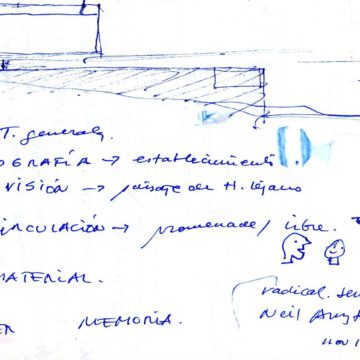 T. generales.
OGRAFÍA → establecimiento
VISIÓN → paisaje de H. lejano
CIRCULACIÓN → promenade/ libre.
MATERIAL.
radical.
MEMORIA. Neil
NOV